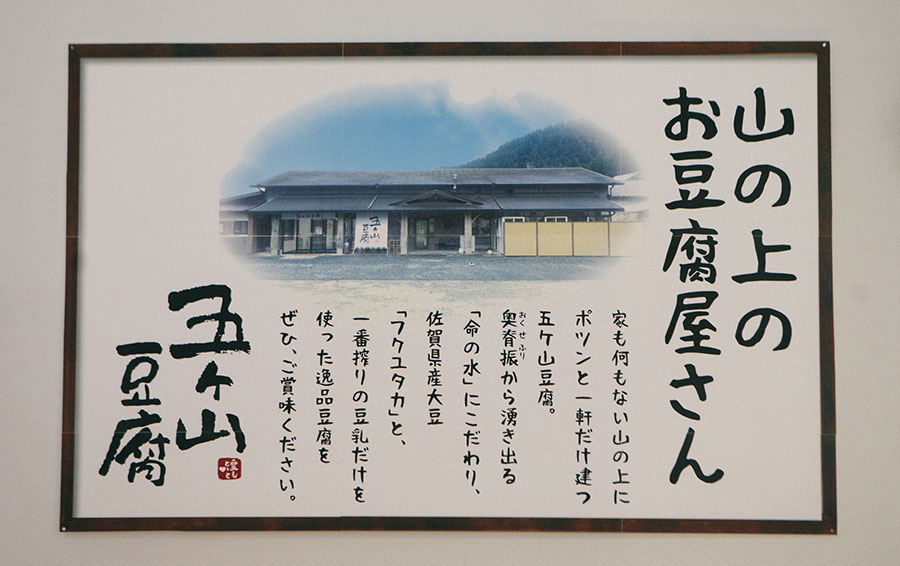 山の上の
お豆腐屋さん
家も何もない山の上に
ポツンと一軒だけ建つ
五ケ山豆腐。
奥脊振から湧き出る
おくせふり
「命の水」にこだわり、
佐賀県産大豆
「フクユタカ」と、
一番搾りの豆乳だけを
使った逸品豆腐を
ぜひ、ご賞味ください。
五ケ山
豆腐
五ケ山
豆腐